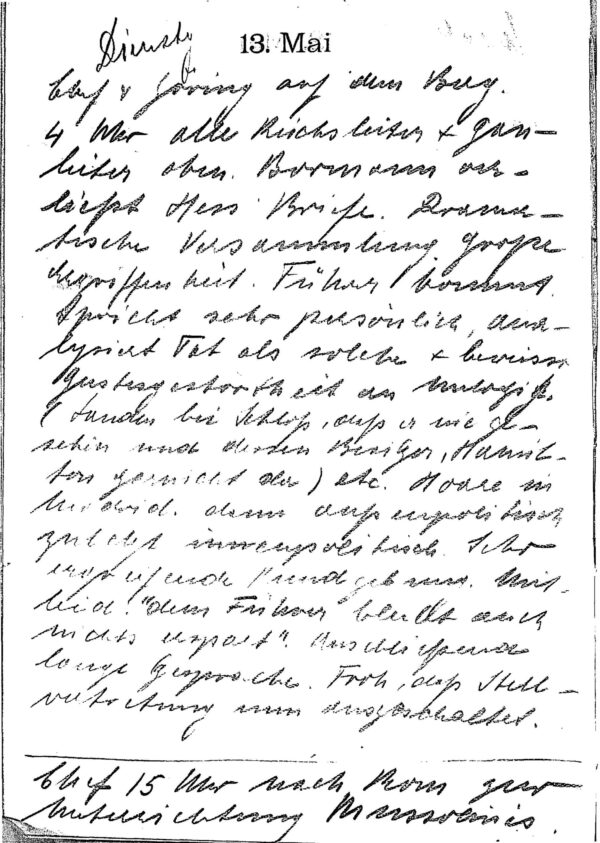 Dienstag
13. Mai
Chef + Göring auf dem Berg.
4 Uhr alle Reichsleiter + Gau-
leiter oben. Bormann ver-
liest Hess Briefe. Drama-
tische Versammlung große
Ergriffenheit. Führer kommt
spricht sehr persönlich, ana-
lysiert Tat als solche + beweist
Geistesgestörtheit an Unlogik.
(Landen bei Schloß, daß er nie ge-
sehen und dessen Besitzer, Hamil-
ton garnicht da) etc. Hoare in
Madrid. dann außenpolitisch
zuletzt innenpolitisch. Sehr
ergreifende Kundgebung. Mit-
leid. "dem Führer bleibt auch
nichts erspart". Anschließend
lange Gespräche. Froh, daß Stell-
vertretung nun ausgeschaltet.
Chef 15 Uhr nach Rom zur
Unterrichtung Mussolinis.